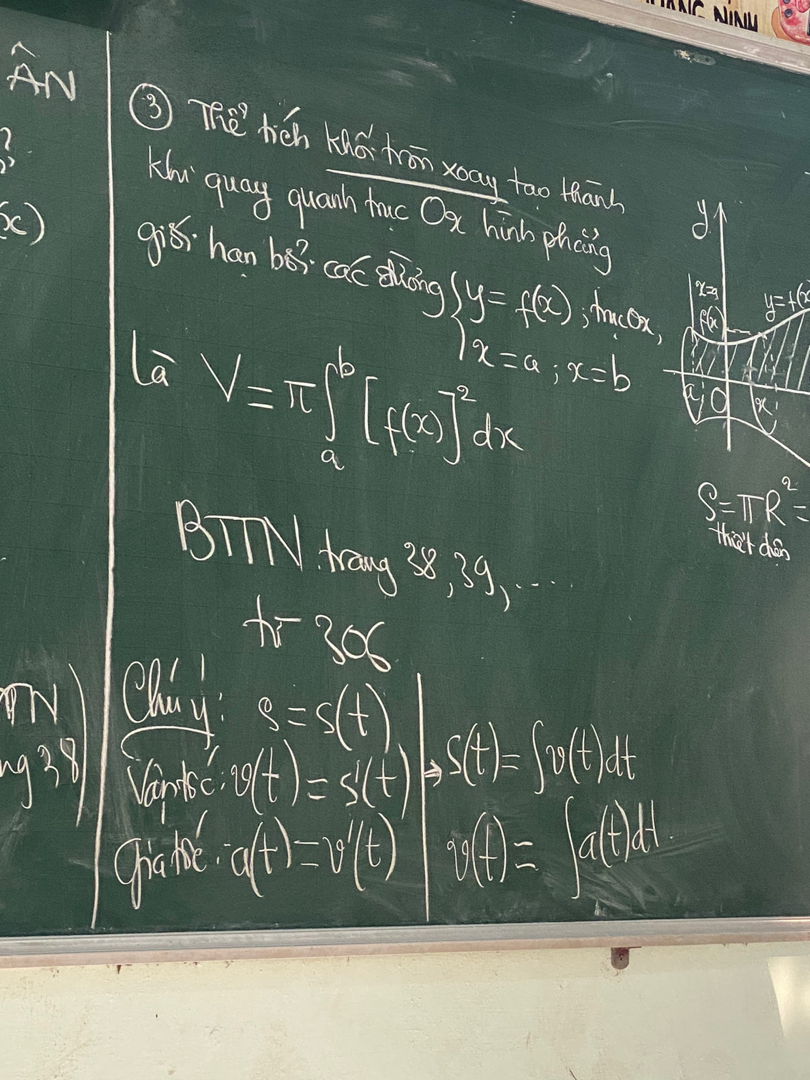 ÂN
(x)
TN
ng 38)
③ Thể tích khối tròn xoay tạo thành
khi quay quanh trục Ox hình phẳng
giới hạn bởi các đường { y = f(x) ; trục Ox,
x = a ; x = b
là V = π ∫ₐᵇ [f(x)]² dx
BTTN trang 38, 39, ....
từ 306
Chú ý: s = s(t)
Vận tốc: v(t) = s'(t)
Gia tốc: a(t) = v'(t)
→ s(t) = ∫v(t)dt
v(t) = ∫a(t)dt.
y
x=a
f(x)
y=f(x
a O x
S = πR² =
thiết diện
NINH